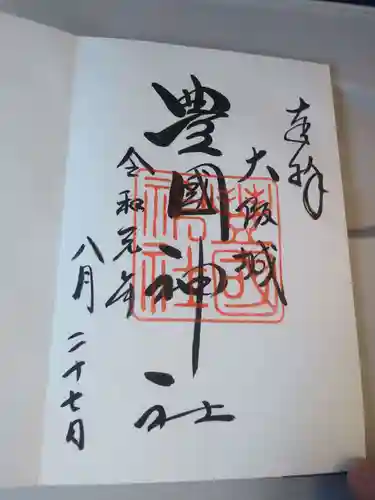 奉拝
大阪城
豊國神社
令和元年
八月二十七日
豊國
神社